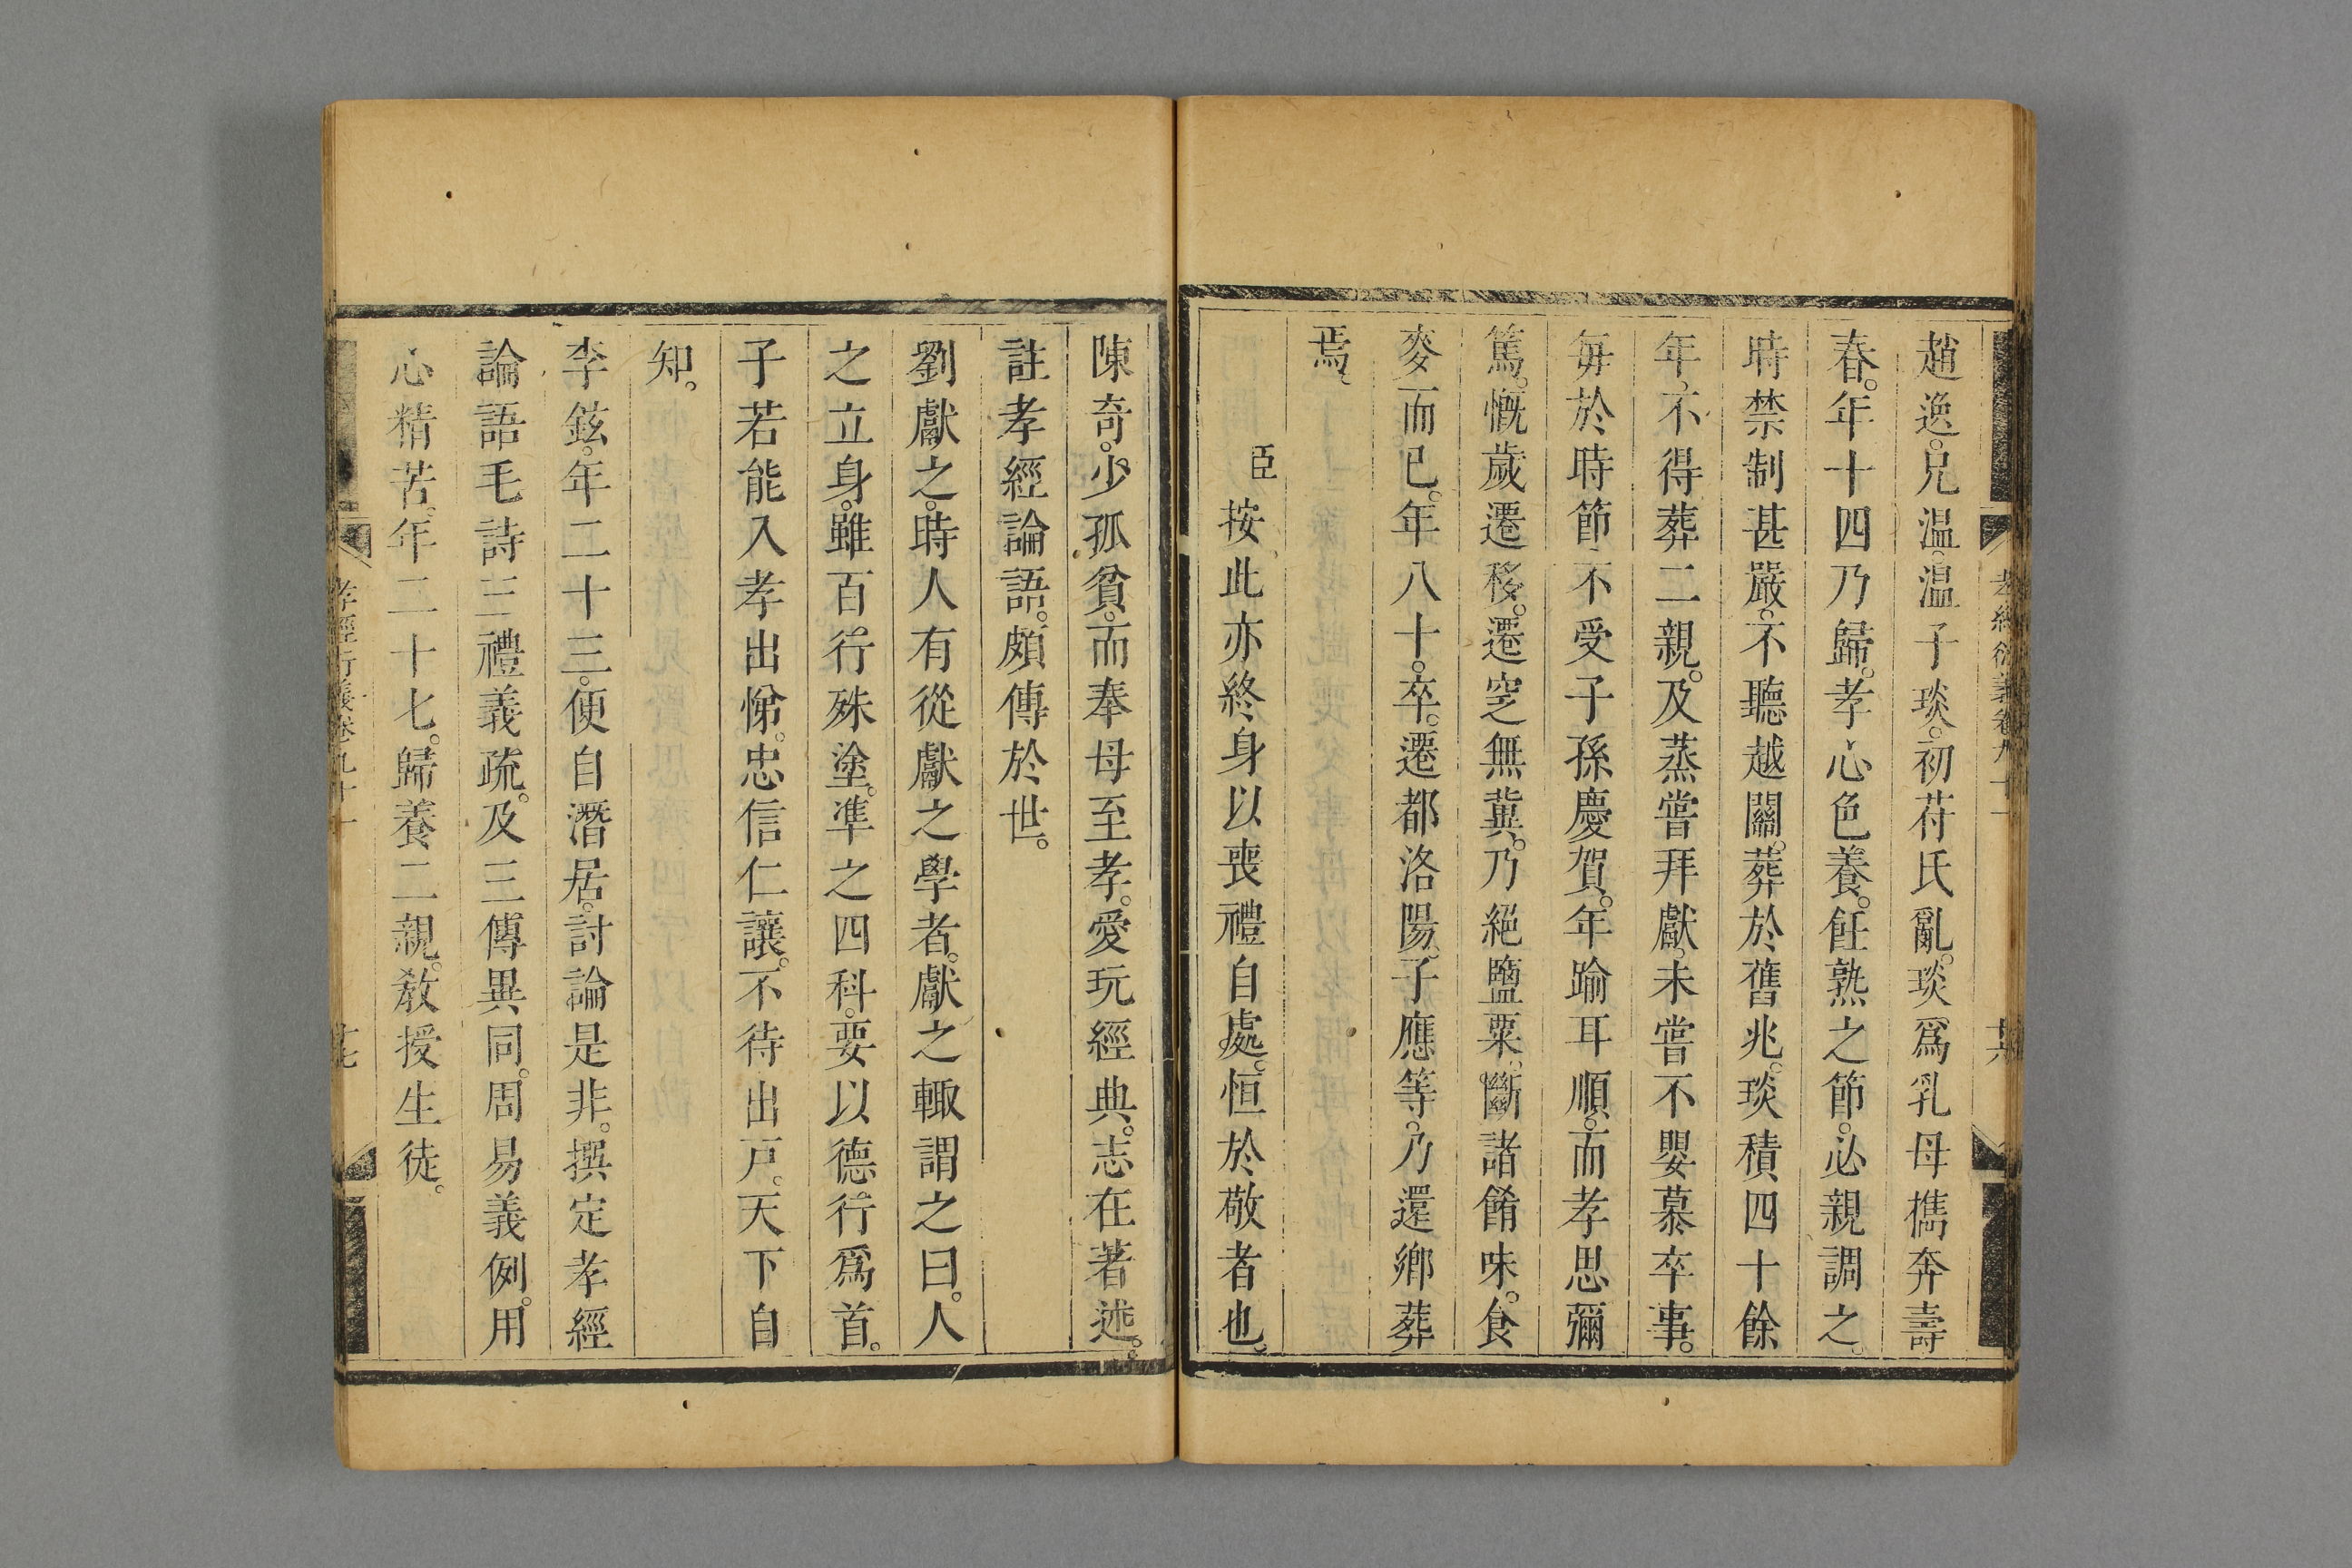 孝經衍義卷九十一 廿六
趙逸。兄温。温子琰。初苻氏亂。琰爲乳母攜奔壽
春。年十四乃歸。孝心色養。飪熟之節。必親調之。
時禁制甚嚴。不聽越關。葬於舊兆。琰積四十餘
年、不得葬二親。及蒸嘗拜獻。未嘗不嬰慕卒事。
每於時節、不受子孫慶賀。年踰耳順。而孝思彌
篤。慨歲遷移。遷窆無冀。乃絕鹽粟。斷諸餚味。食
麥而已。年八十。卒。遷都洛陽。子應等。乃還鄉葬
焉。
臣按此亦終身以喪禮自處。恒於敬者也。
陳奇。少孤貧。而奉母至孝。愛玩經典。志在著述。
註孝經論語。頗傳於世。
劉獻之。時人有從獻之學者。獻之輙謂之曰。人
之立身。雖百行殊塗。準之四科。要以德行爲首。
子若能入孝出悌。忠信仁讓。不待出戶。天下自
知。
李鉉。年二十三。便自潛居。討論是非。撰定孝經
論語毛詩三禮義疏。及三傳異同。周易義例。用
心精苦。年二十七。歸養二親。敎授生徒。
孝經衍義卷九十一 廿七